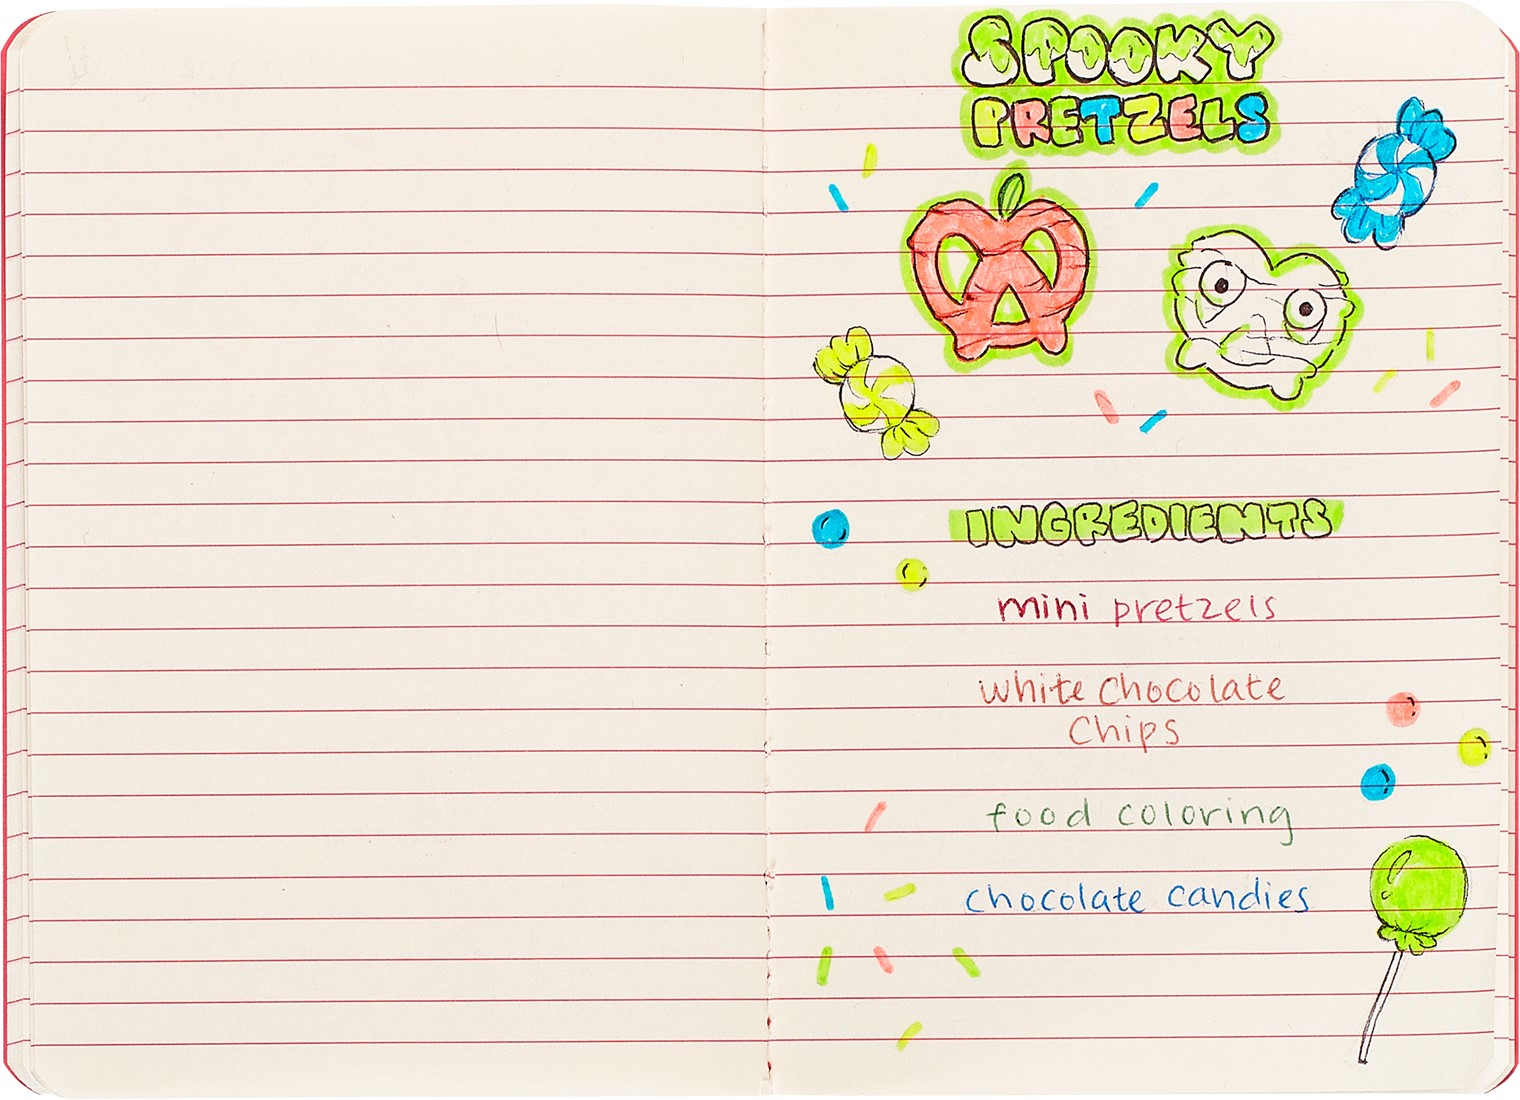 SPOOKY
PRETZELS
INGREDIENTS
mini pretzels
white chocolate
chips
food coloring
chocolate candies